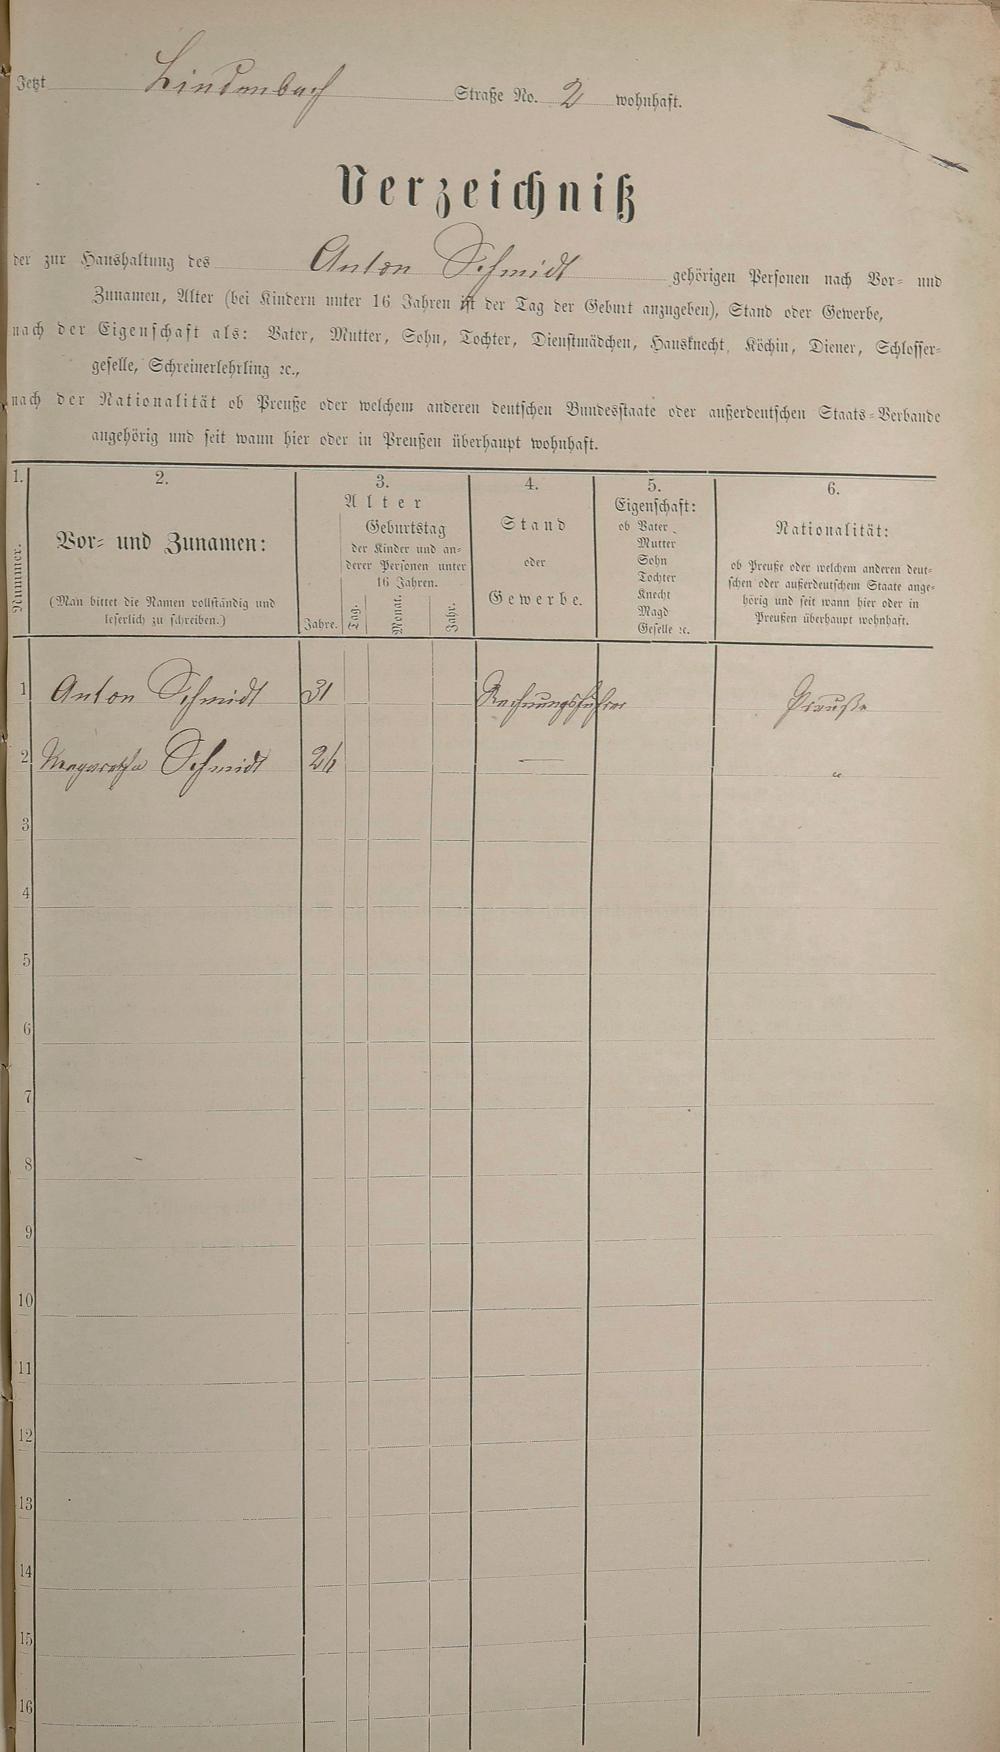 Jetzt Lindenbach Straße No. 2 wohnhaft.
Verzeichniß
der zur Haushaltung des Anton Schmidt gehörigen Personen nach Vor- und
Zunamen, Alter (bei Kindern unter 16 Jahren ist der Tag der Geburt anzugeben), Stand oder Gewerbe,
nach der Eigenschaft als: Vater, Mutter, Sohn, Tochter, Dienstmädchen, Hausknecht, Köchin, Diener, Schlosser-
geselle, Schreinerlehrling ꝛc.,
nach der Nationalität ob Preuße oder welchem anderen deutschen Bundesstaate oder außerdeutschen Staats-Verbande
angehörig und seit wann hier oder in Preußen überhaupt wohnhaft.
1.
Nummer.
2.
Vor- und Zunamen:
(Man bittet die Namen vollständig und
leserlich zu schreiben.)
3.
Alter
Geburtstag
der Kinder und an-
derer Personen unter
16 Jahren.
Jahre. Tag. Monat. Jahr.
4.
Stand
oder
Gewerbe.
5.
Eigenschaft:
ob Vater
Mutter
Sohn
Tochter
Knecht
Magd
Geselle ꝛc.
6.
Nationalität:
ob Preuße oder welchem anderen deut-
schen oder außerdeutschem Staate ange-
hörig und seit wann hier oder in
Preußen überhaupt wohnhaft.
1 Anton Schmidt 31 Rechnungsführer Preuße
2 Magaretha Schmidt 26 — "
3
4
5
6
7
8
9
10
11
12
13
14
15
16